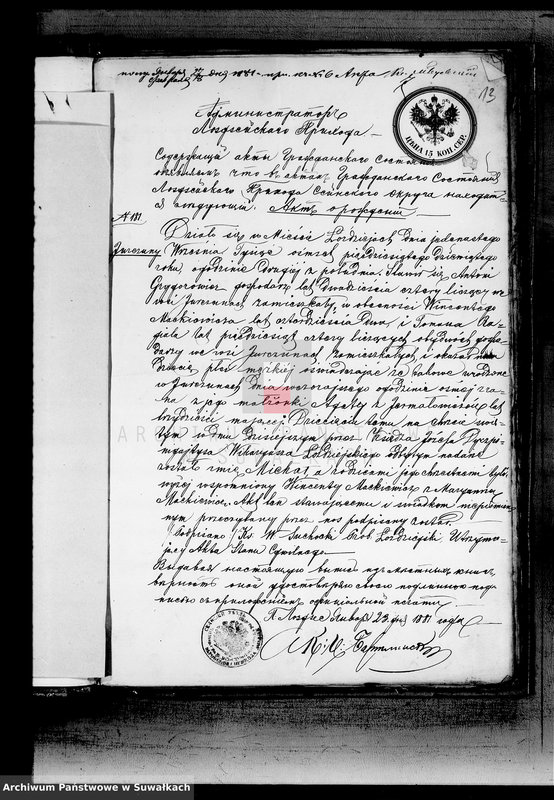 13
ЦѢНА 15 КОП. СЕР.
Администраторъ
Лоздзейского Прихода
Содержащій акты Гражданского Состоянія
объявляетъ что въ актахъ Гражданского Состоянія
Лоздзейского Прихода Сейнского округа находит-
ся следующій. Актъ о рожденіи
№ 181
Jurczuny
Działo się w Mieście Łozdziejach dnia jedenastego
Września Tysiąc ośmset pięćdziesiątego dziewiątego
roku, o godzinie drugiej z południa. Stawił się Antoni
Grygorowicz gospodarz lat dwadzieścia cztery liczący we
wsi Jurczunach zamieszkały w obecności Wincentego
Mackiewicza lat czterdzieścia dwa, i Tomasza
lat piędziesiąt cztery liczących obydwóch gospo-
darzy we wsi Jurczunach zamieszkałych i okazał nam
dziecię płci męzkiej oświadczając że takowe urodzone
w Jurczunach dnia wczorajszego o godzinie ósmej zra-
na z jego małżonki Agaty z Jermałowiczów lat
trzydzieści mającej. Dziecięciu temu na Chrzcie świę-
tym w dniu dzisiejszym przez Księdza Józefa
Wikaryusza Łozdziejskiego odbytym nadane
zostało imię Michał, a rodzicami jego chrzestnemi byli
wyżej wspomniony Wincenty Mackiewicz z Maryanną
Mackiewicz. Akt ten stawającemu i świadkom niepiśmien-
nym przeczytany przez nas podpisany został.
Podpisano Ks. W Suchocki Prob. Łozdziejski Utrzymu-
jący Akta Stanu Cywilnego
Выдавая настоящую выпись изъ метрычныхъ книгъ
верность оной удостоверяю своею подлинною под-
писью съ приложеніемъ официальной печати
П Лоздзее Января 23 дня 1881 года
Archiwum Państwowe w Suwałkach